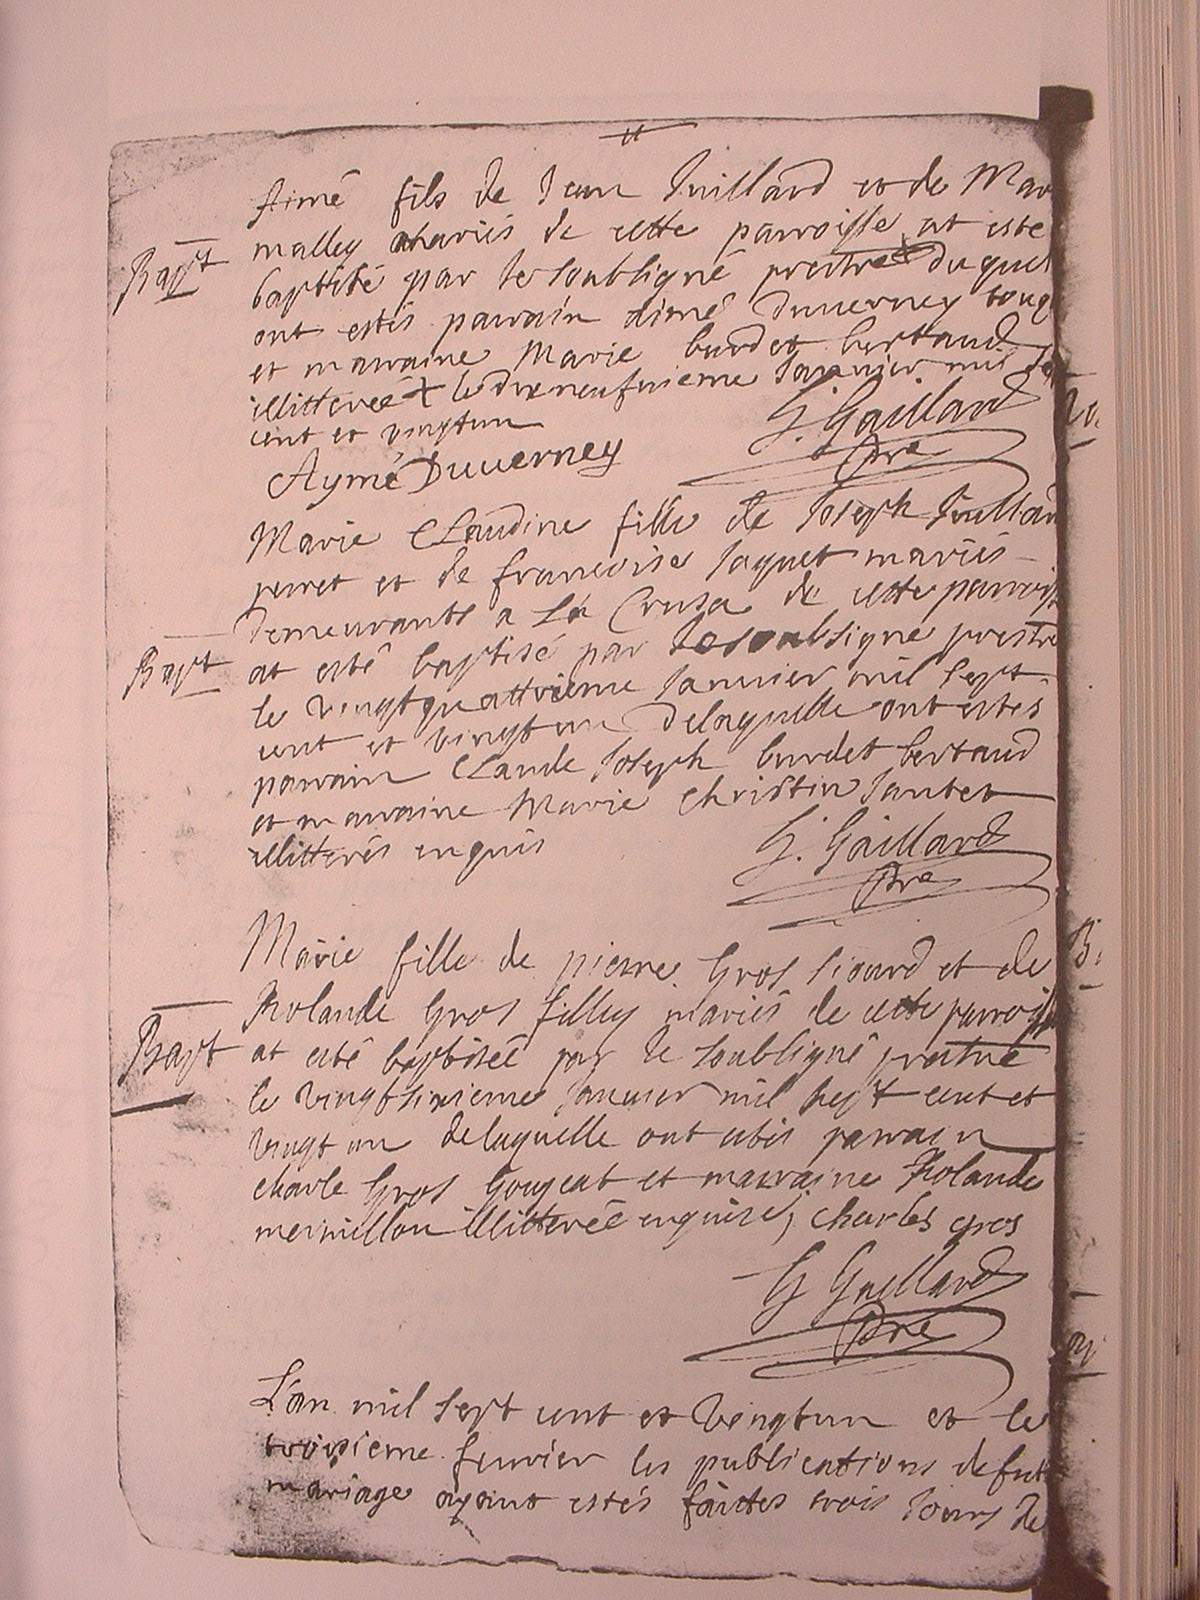 Aimé fils de Jean Juillard et de Mar
malley mariés de cette parroisse at este
Bapt
baptisé par le soubsigné prestre duquel
ont estés parrain aimé Duverney
et marraine Marie burdet bertaud
illitterée le dixneufvieme Janvier mil
cent et vingtun
G. Gaillard
Pre
Aymé Duverney
Marie Claudine fille de Joseph Juillard
perret et de francoise Jaquet mariés
demeurants a La Crusa de cette parroiss
Bapt
at esté baptisé par le soubsigné prestre
le vingtquattrieme Janvier mil sept
cent et vingtun delaquelle ont estés
parrain Claude Joseph burdet bertaud
et marraine Marie Christin
illitterés enquis
G. Gaillard
Pre
Marie fille de pierre Gros et de
Rolande Gros filley mariés de cette parroiss
Bapt
at esté baptisée par le soubsigné prestre
le vingtsixieme Janvier mil sept cent et
vingt un delaquelle ont estés parrain
charle Gros et marraine Rolande
mermillon illitterée enquise, charles gros
G Gaillard
Pre
L'an mil sept cent et vingtun et le
troisieme fevrier les publications de fut
mariage ayant estés faittes trois Jours de